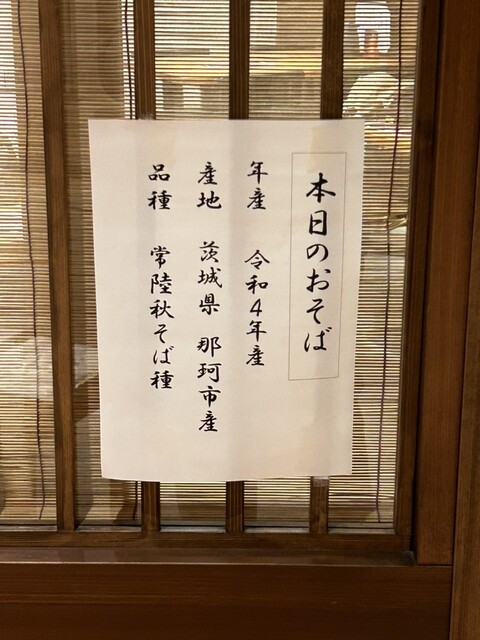 本日のおそば
年産 令和4年産
産地 茨城県 那珂市産
品種 常陸秋そば種